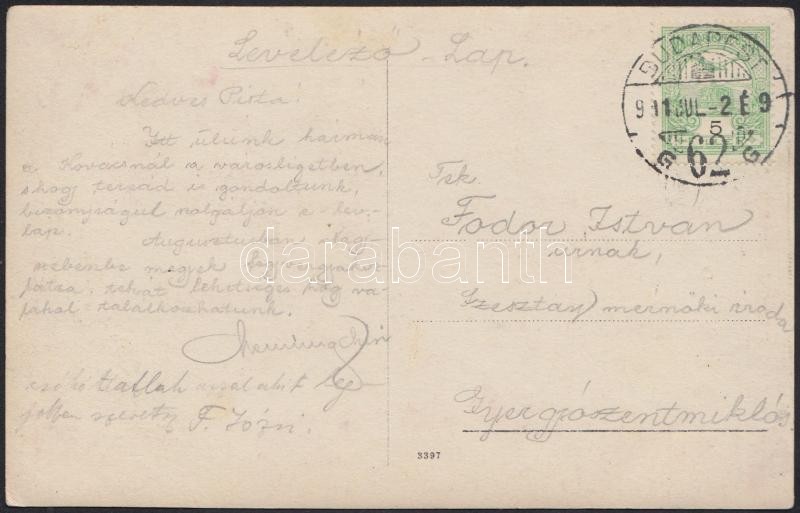 Levelező Lap.
Kedves Pista!
Itt ülünk hárman
a Kovácsnál a városligetben,
s hogy terád is gondoltunk,
bizonyságul szolgáljon e lev.-
lap.
Augusztusban Nagy-
szebenbe megyek
tehát lehetséges hogy va-
lahol találkozhatunk.
csókol
F. Józsi.
BUDAPEST
911 JUL -2 É 9
62
5
Tek.
Fodor Istvan
úrnak,
Szesztay mérnöki iroda
Gyergyószentmiklós
3397
darabanth